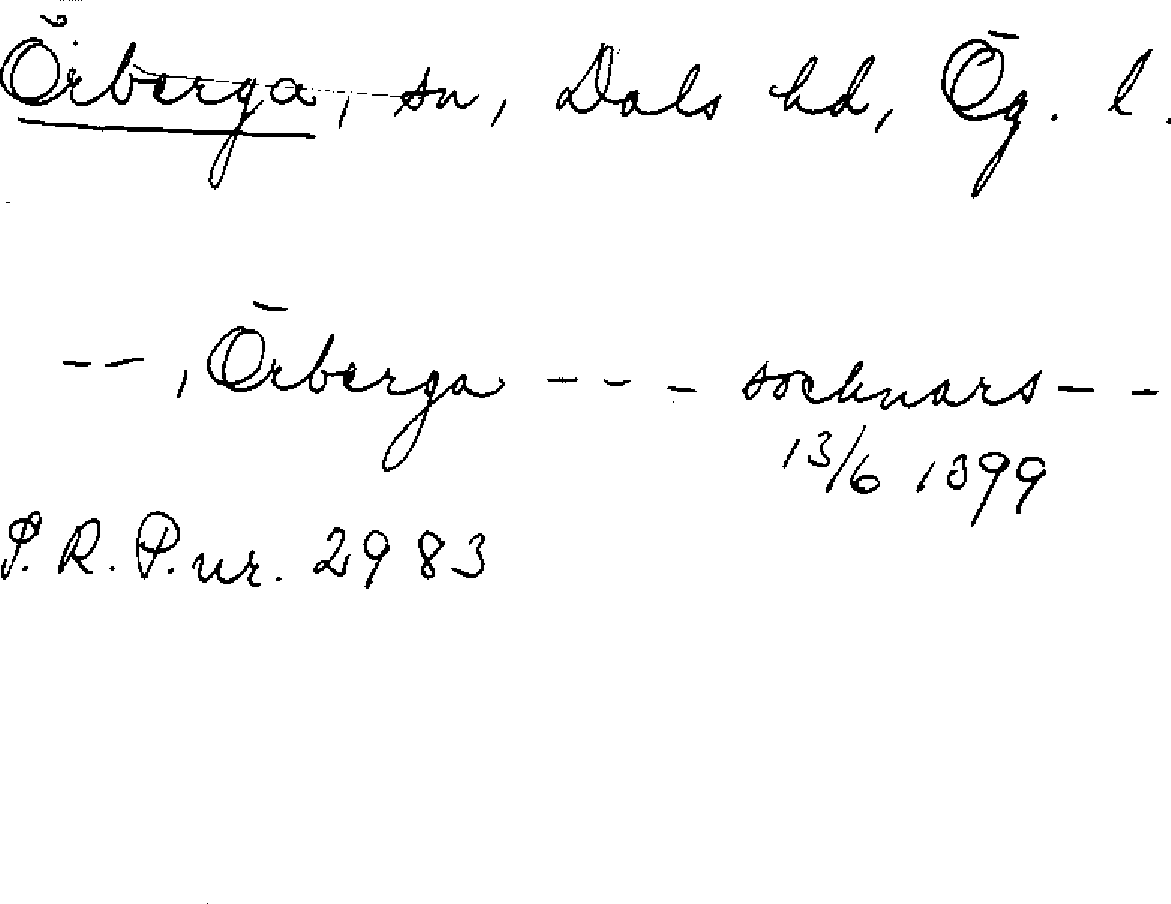 Örberga, sn, Dals hd, Ög. l.
- - , Örberga - - - soknars - -
13/6 1399
P. R. P. nr. 2983